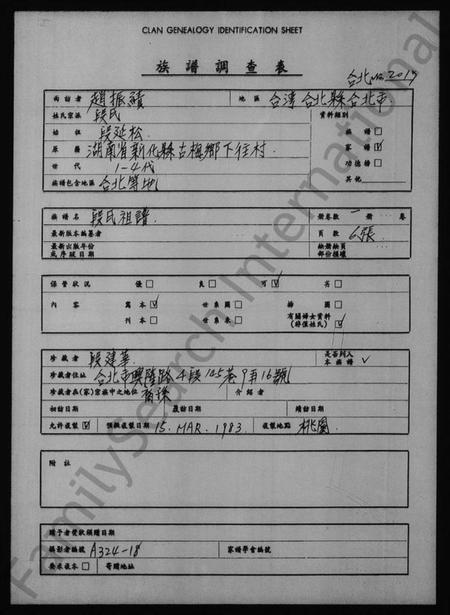 CLAN GENEALOGY IDENTIFICATION SHEET
族譜調查表
台北 No. 2019
面訪者 趙振績 地區 台灣台北縣台北市
姓氏宗派 段氏 資料類別
始祖 段延松 族譜 □
原籍 湖南省新化縣古梅鄉下往村 家譜 ☑
世代 1-4代 功德榜 □
族譜包含地區 台北等地 其他
族譜名 段氏祖譜 冊卷數 一 冊 卷
最新版本編纂者 頁數 6張
最新出版年份或序跋日期 缺冊缺頁部份損壞
保管狀況 優 □ 良 □ 可 ☑ 劣 □
內容 寫本 ☑ 世系圖 □ 插圖 □
刊本 □ 世系表 □ 有關婦女資料(除僅姓氏) □
珍藏者 段建華 是否列入本族譜 ✓
珍藏者住址 台北市興隆路4段145巷9弄16號
珍藏者在(家)宗族中之地位 裔孫 介紹者
初訪日期 覆訪日期 續訪日期
允許複製 ☑ 預擬複製日期 15. MAR. 1983. 複製地點 桃園.
附註
贈予者獎狀頒贈日期
攝影者編號 A324-18 家譜學會編號
要求複本 □ 寄贈地址
FamilySearch International